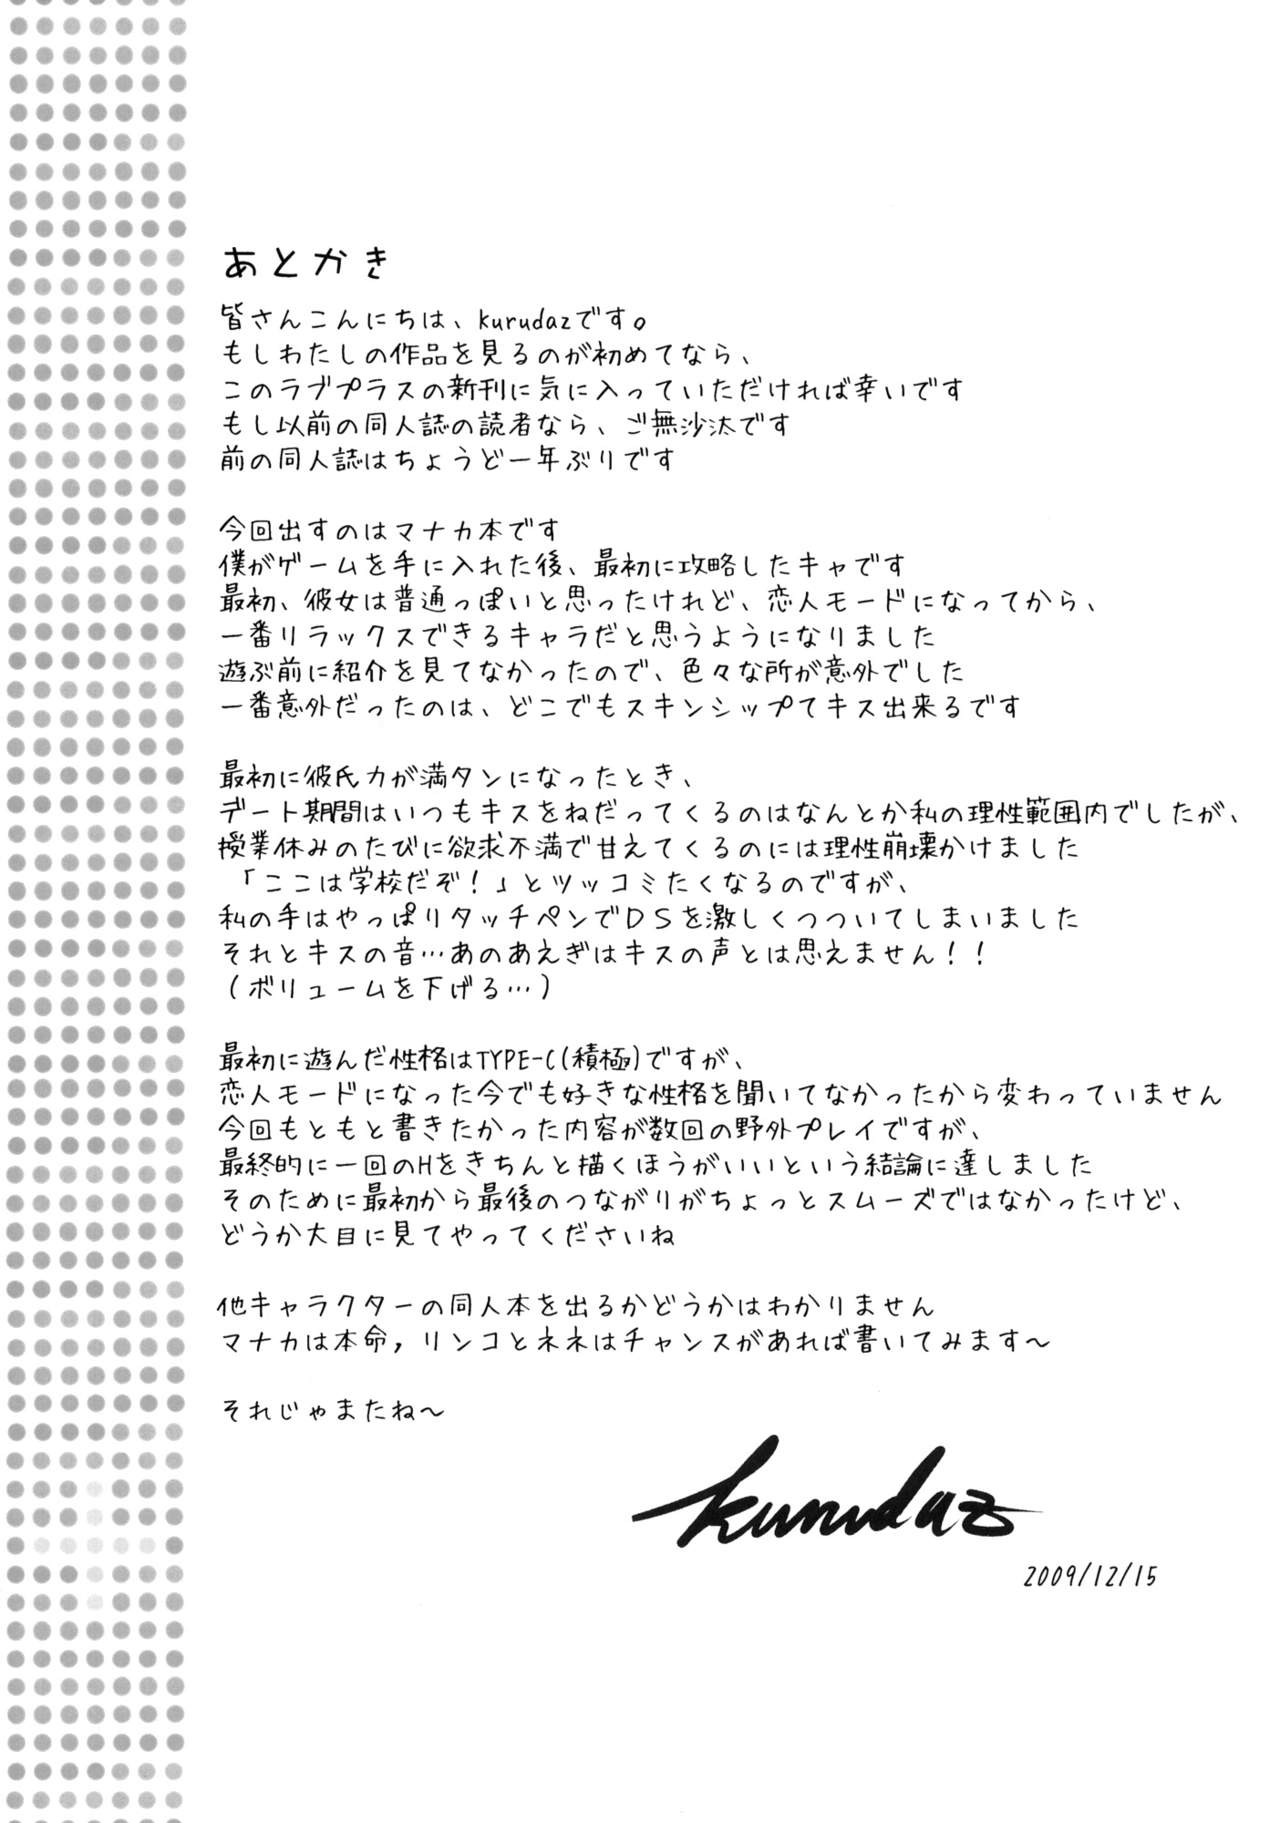 あとかき
皆さんこんにちは、kurudazです。
もしわたしの作品を見るのが初めてなら、
このラブプラスの新刊に気に入っていただければ幸いです
もし以前の同人誌の読者なら、ご無沙汰です
前の同人誌はちょうど一年ぶりです
今回出すのはマナカ本です
僕がゲームを手に入れた後、最初に攻略したキャです
最初、彼女は普通っぽいと思ったけれど、恋人モードになってから、
一番リラックスできるキャラだと思うようになりました
遊ぶ前に紹介を見てなかったので、色々な所が意外でした
一番意外だったのは、どこでもスキンシップてキス出来るです
最初に彼氏力が満タンになったとき、
デート期間はいつもキスをねだってくるのはなんとか私の理性範囲内でしたが、
授業休みのたびに欲求不満で甘えてくるのには理性崩壊かけました
「ここは学校だぞ！」とツッコミたくなるのですが、
私の手はやっぱりタッチペンでDSを激しくつついてしまいました
それとキスの音…あのあえぎはキスの声とは思えません！！
（ボリュームを下げる…）
最初に遊んだ性格はTYPE-C(積極)ですが、
恋人モードになった今でも好きな性格を聞いてなかったから変わっていません
今回もともと書きたかった内容が数回の野外プレイですが、
最終的に一回のHをきちんと描くほうがいいという結論に達しました
そのために最初から最後のつながりがちょっとスムーズではなかったけど、
どうか大目に見てやってくださいね
他キャラクターの同人本を出るかどうかはわかりません
マナカは本命，リンコとネネはチャンスがあれば書いてみます～
それじゃまたね～
kurudaz
2009/12/15